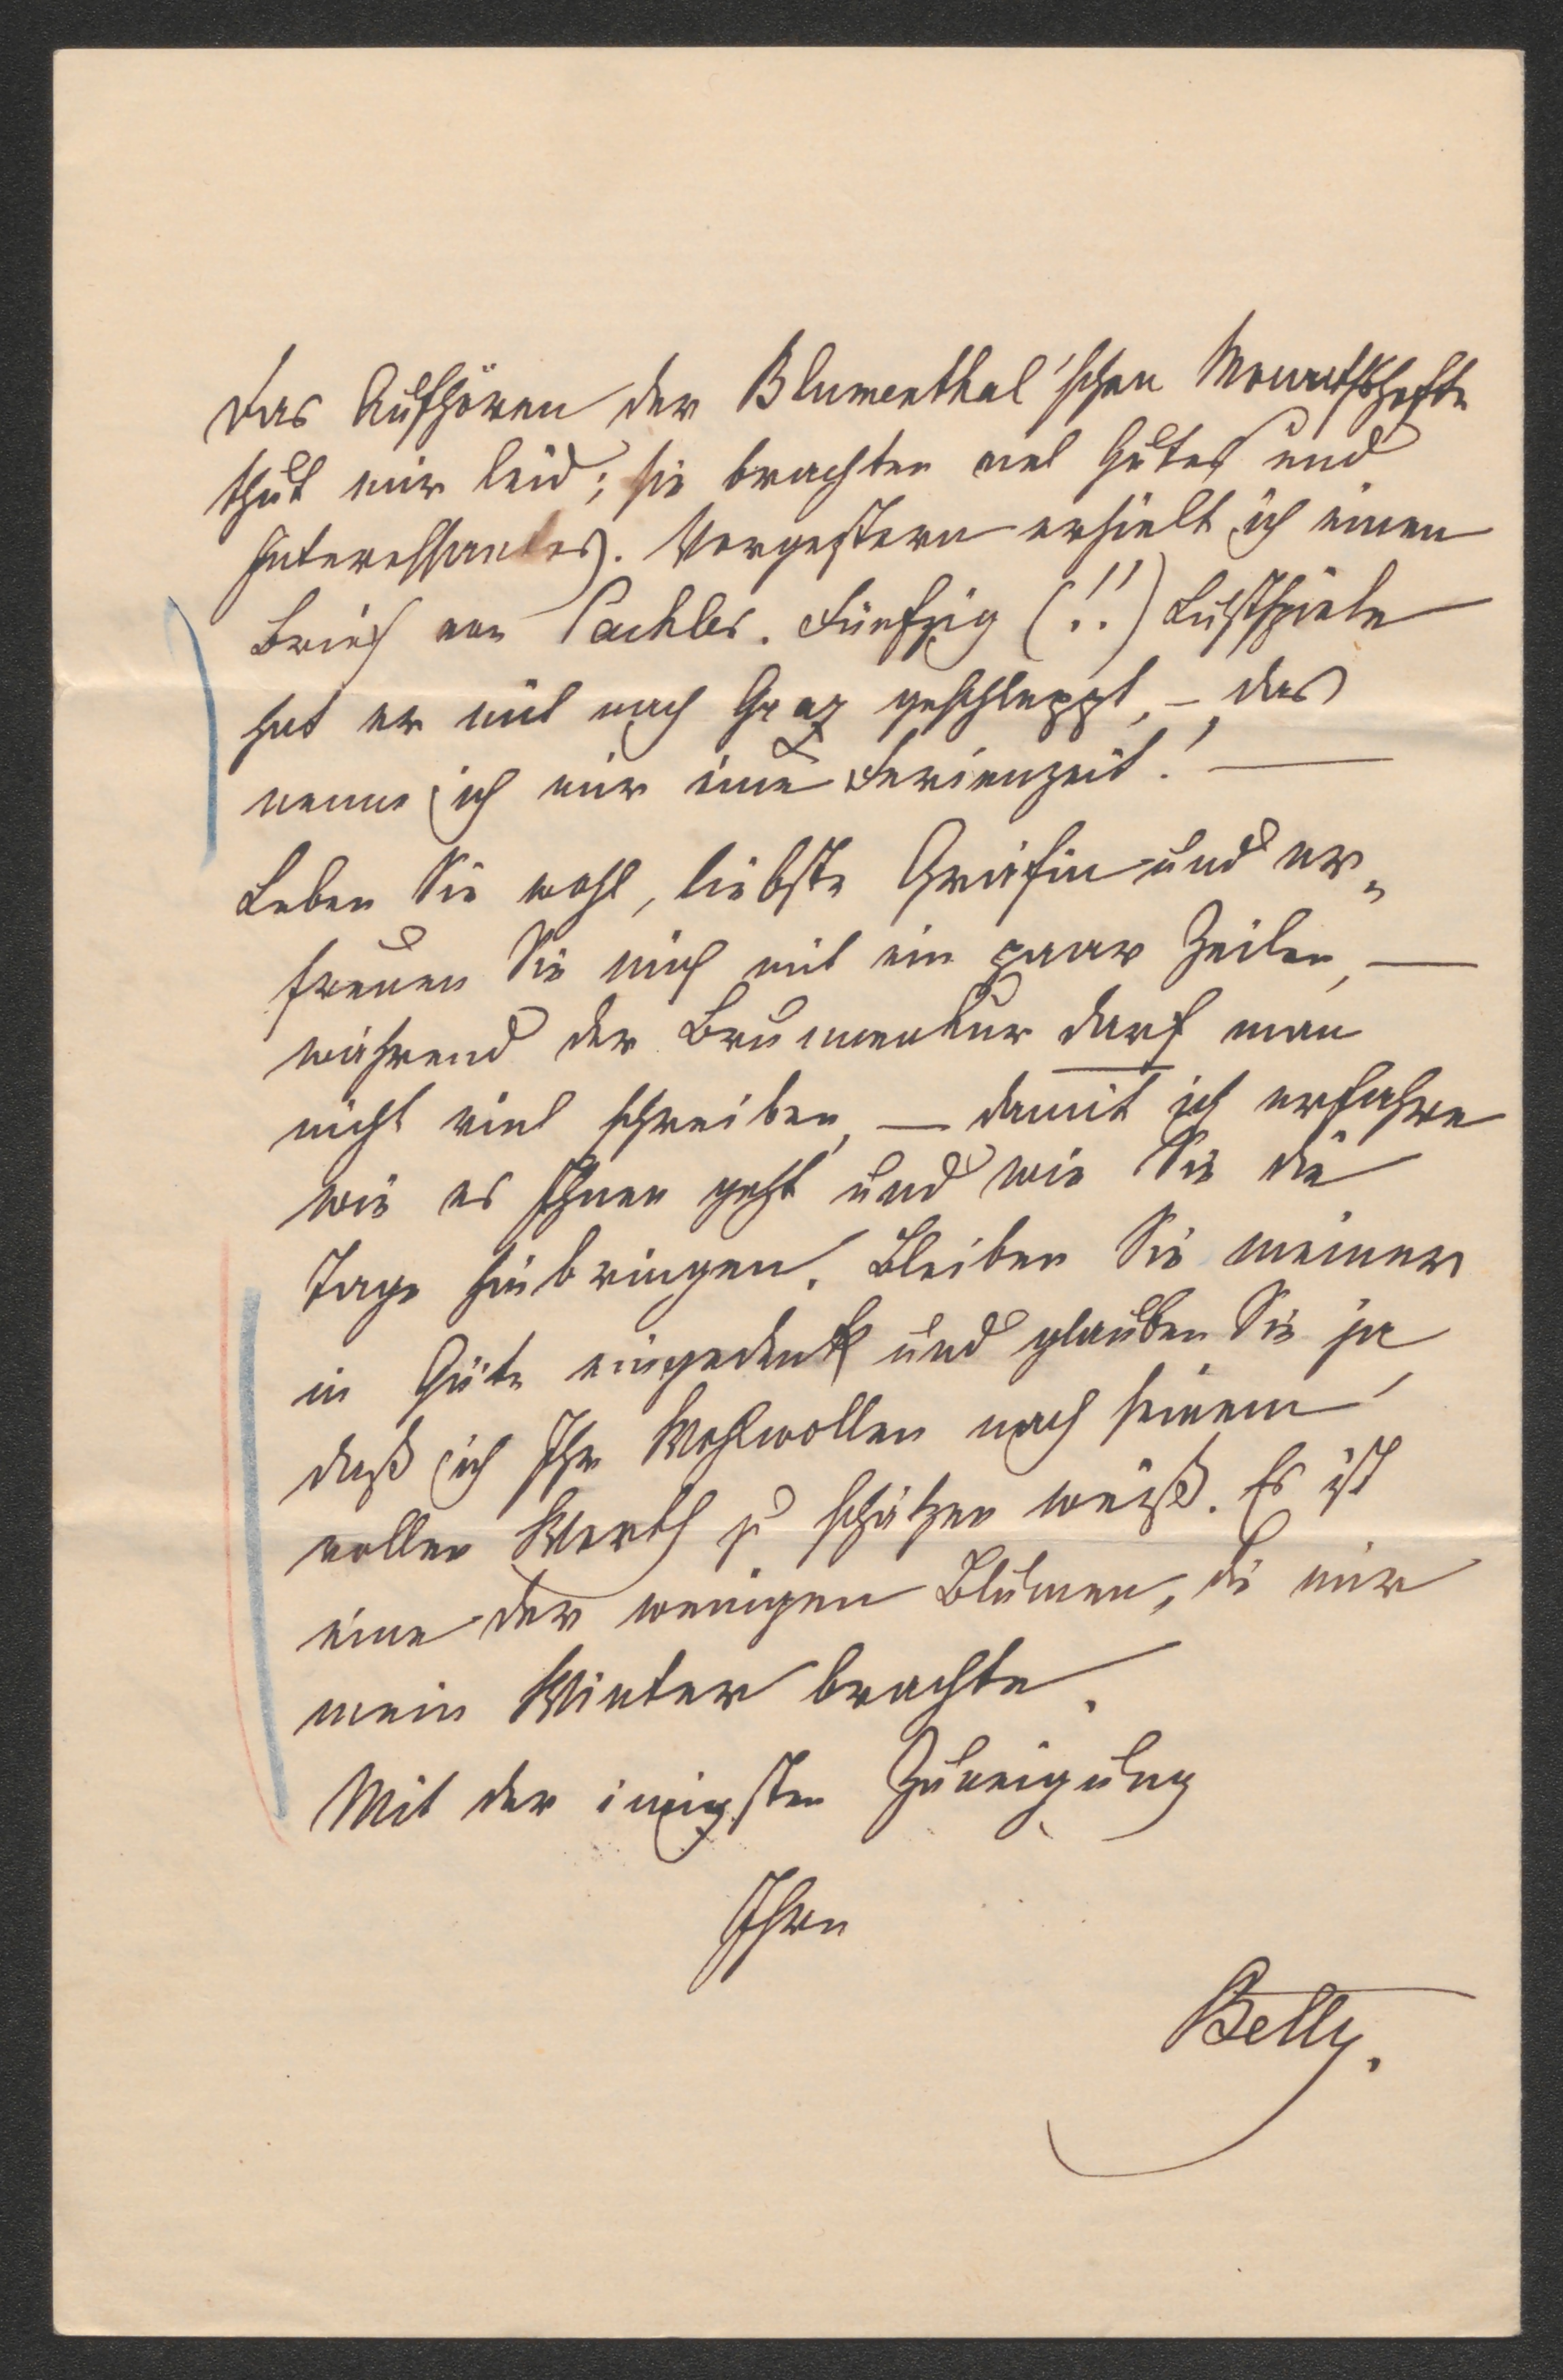 Das Aufhören der Blumenthal'schen Monatshefte
thut mir leid; sie brachten viel Gutes und
Interessantes. Vorgestern erhielt ich einen
Brief von Pachler. Fünfzig (!!) Lustspiele
hat er mit nach Graz geschleppt, –, das
nenne ich mir eine Ferienzeit! —
Leben Sie wohl, liebste Gräfin und er„
freuen Sie mich mit ein paar Zeilen, —
während der Brunnenkur darf man
nicht viel schreiben, — damit ich erfahre
wie es Ihnen geht und wie Sie die
Tage hinbringen. Bleiben Sie meiner
in Güte eingedenk und glauben Sie ja
daß ich Ihr Wohlwollen nach seinem
vollen Werth zu schätzen weiß. Es ist
eine der wenigen Blumen, die mir
mein Winter brachte.
Mit der innigsten Zuneigung
Ihre
Betty.